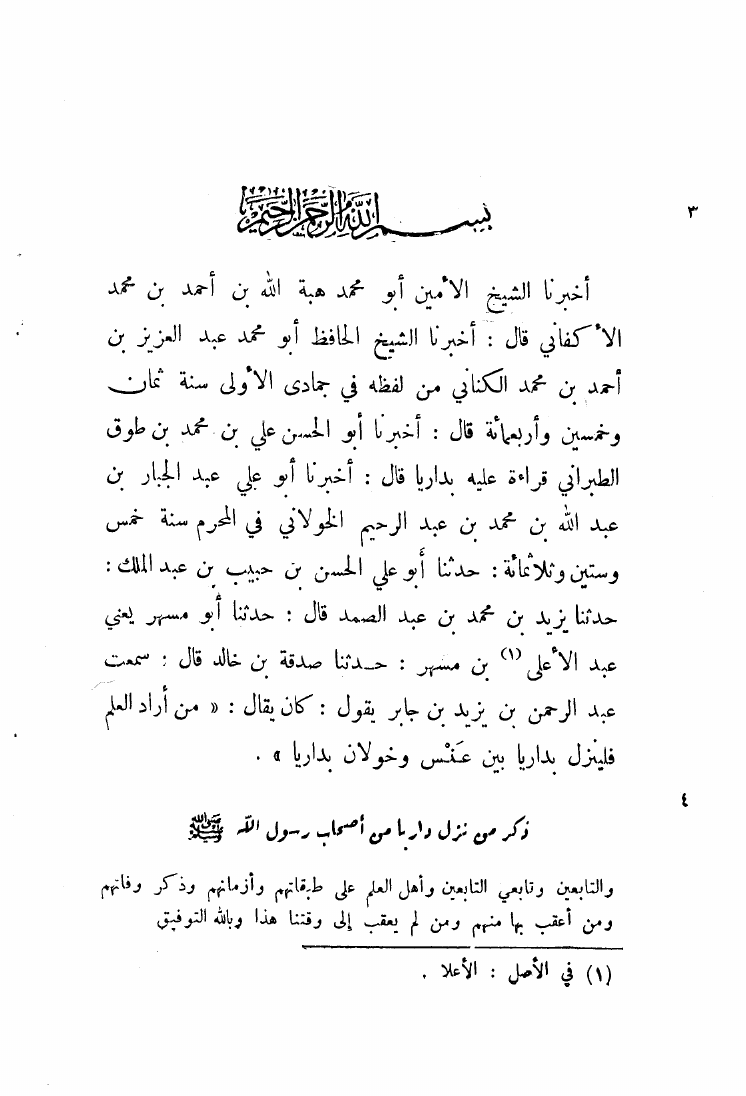 ٣
بسم الله الرحمن الرحيم
أخبرنا الشيخ الأمين أبو محمد هبة الله بن أحمد بن محمد
الأكفاني قال : أخبرنا الشيخ الحافظ أبو محمد عبد العزيز بن
أحمد بن محمد الكناني من لفظه في جمادى الأولى سنة ثمان
وخمسين وأربعمائة قال : أخبرنا أبو الحسن علي بن محمد بن طوق
الطبراني قراءة عليه بداريا قال : أخبرنا أبو علي عبد الجبار بن
عبد الله بن محمد بن عبد الرحيم الخولاني في المحرم سنة خمس
وستين وثلاثمائة : حدثنا أبو علي الحسن بن حبيب بن عبد الملك :
حدثنا يزيد بن محمد بن عبد الصمد قال : حدثنا أبو مسهر يعني
عبد الأعلى (١) بن مسهر : حدثنا صدقة بن خالد قال : سمعت
عبد الرحمن بن يزيد بن جابر يقول : كان يقال : « من أراد العلم
فلينزل بداريا بين عَنْس وخولان بداريا » .
٤
ذكر من نزل داريا من أصحاب رسول الله ﷺ
والتابعين وتابعي التابعين وأهل العلم على طبقاتهم وأزمانهم وذكر وفاتهم
ومن أعقب بها منهم ومن لم يعقب إلى وقتنا هذا وبالله التوفيق
(١) في الأصل : الأعلا .